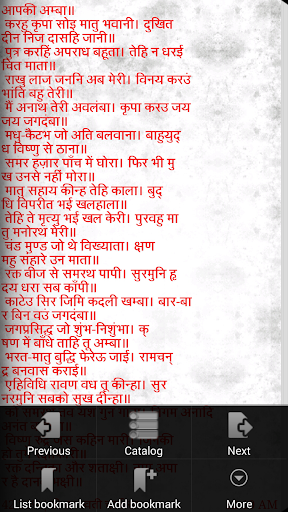 आपकी अम्बा॥
करहु कृपा सोइ मातु भवानी। दुखित
दीन निज दासहि जानी॥
पुत्र करहिं अपराध बहूता। तेहि न धरई
चित माता॥
राखु लाज जननि अब मेरी। विनय करउं
भांति बहु तेरी॥
मैं अनाथ तेरी अवलंबा। कृपा करउ जय
जय जगदंबा॥
मधु-कैटभ जो अति बलवाना। बाहुयुद्
ध विष्णु से ठाना॥
समर हज़ार पाँच में घोरा। फिर भी मु
ख उनसे नहीं मोरा॥
मातु सहाय कीन्ह तेहि काला। बुद्
धि विपरीत भई खलहाला॥
तेहि ते मृत्यु भई खल केरी। पुरवहु मा
तु मनोरथ मेरी॥
चंड मुण्ड जो थे विख्याता। क्षण
महु संहारे उन माता॥
रक्त बीज से समरथ पापी। सुरमुनि हृ
दय धरा सब काँपी॥
काटेउ सिर जिमि कदली खम्बा। बार-बा
र बिन वउं जगदंबा॥
जगप्रसिद्ध जो शुंभ-निशुंभा। क्
षण में बाँधे ताहि तू अम्बा॥
भरत-मातु बुद्धि फेरेऊ जाई। रामचन्
द्र बनवास कराई॥
एहिविधि रावण वध तू कीन्हा। सुर
नरमुनि सबको सुख दीन्हा॥
Previous Catalog Next
List bookmark Add bookmark More